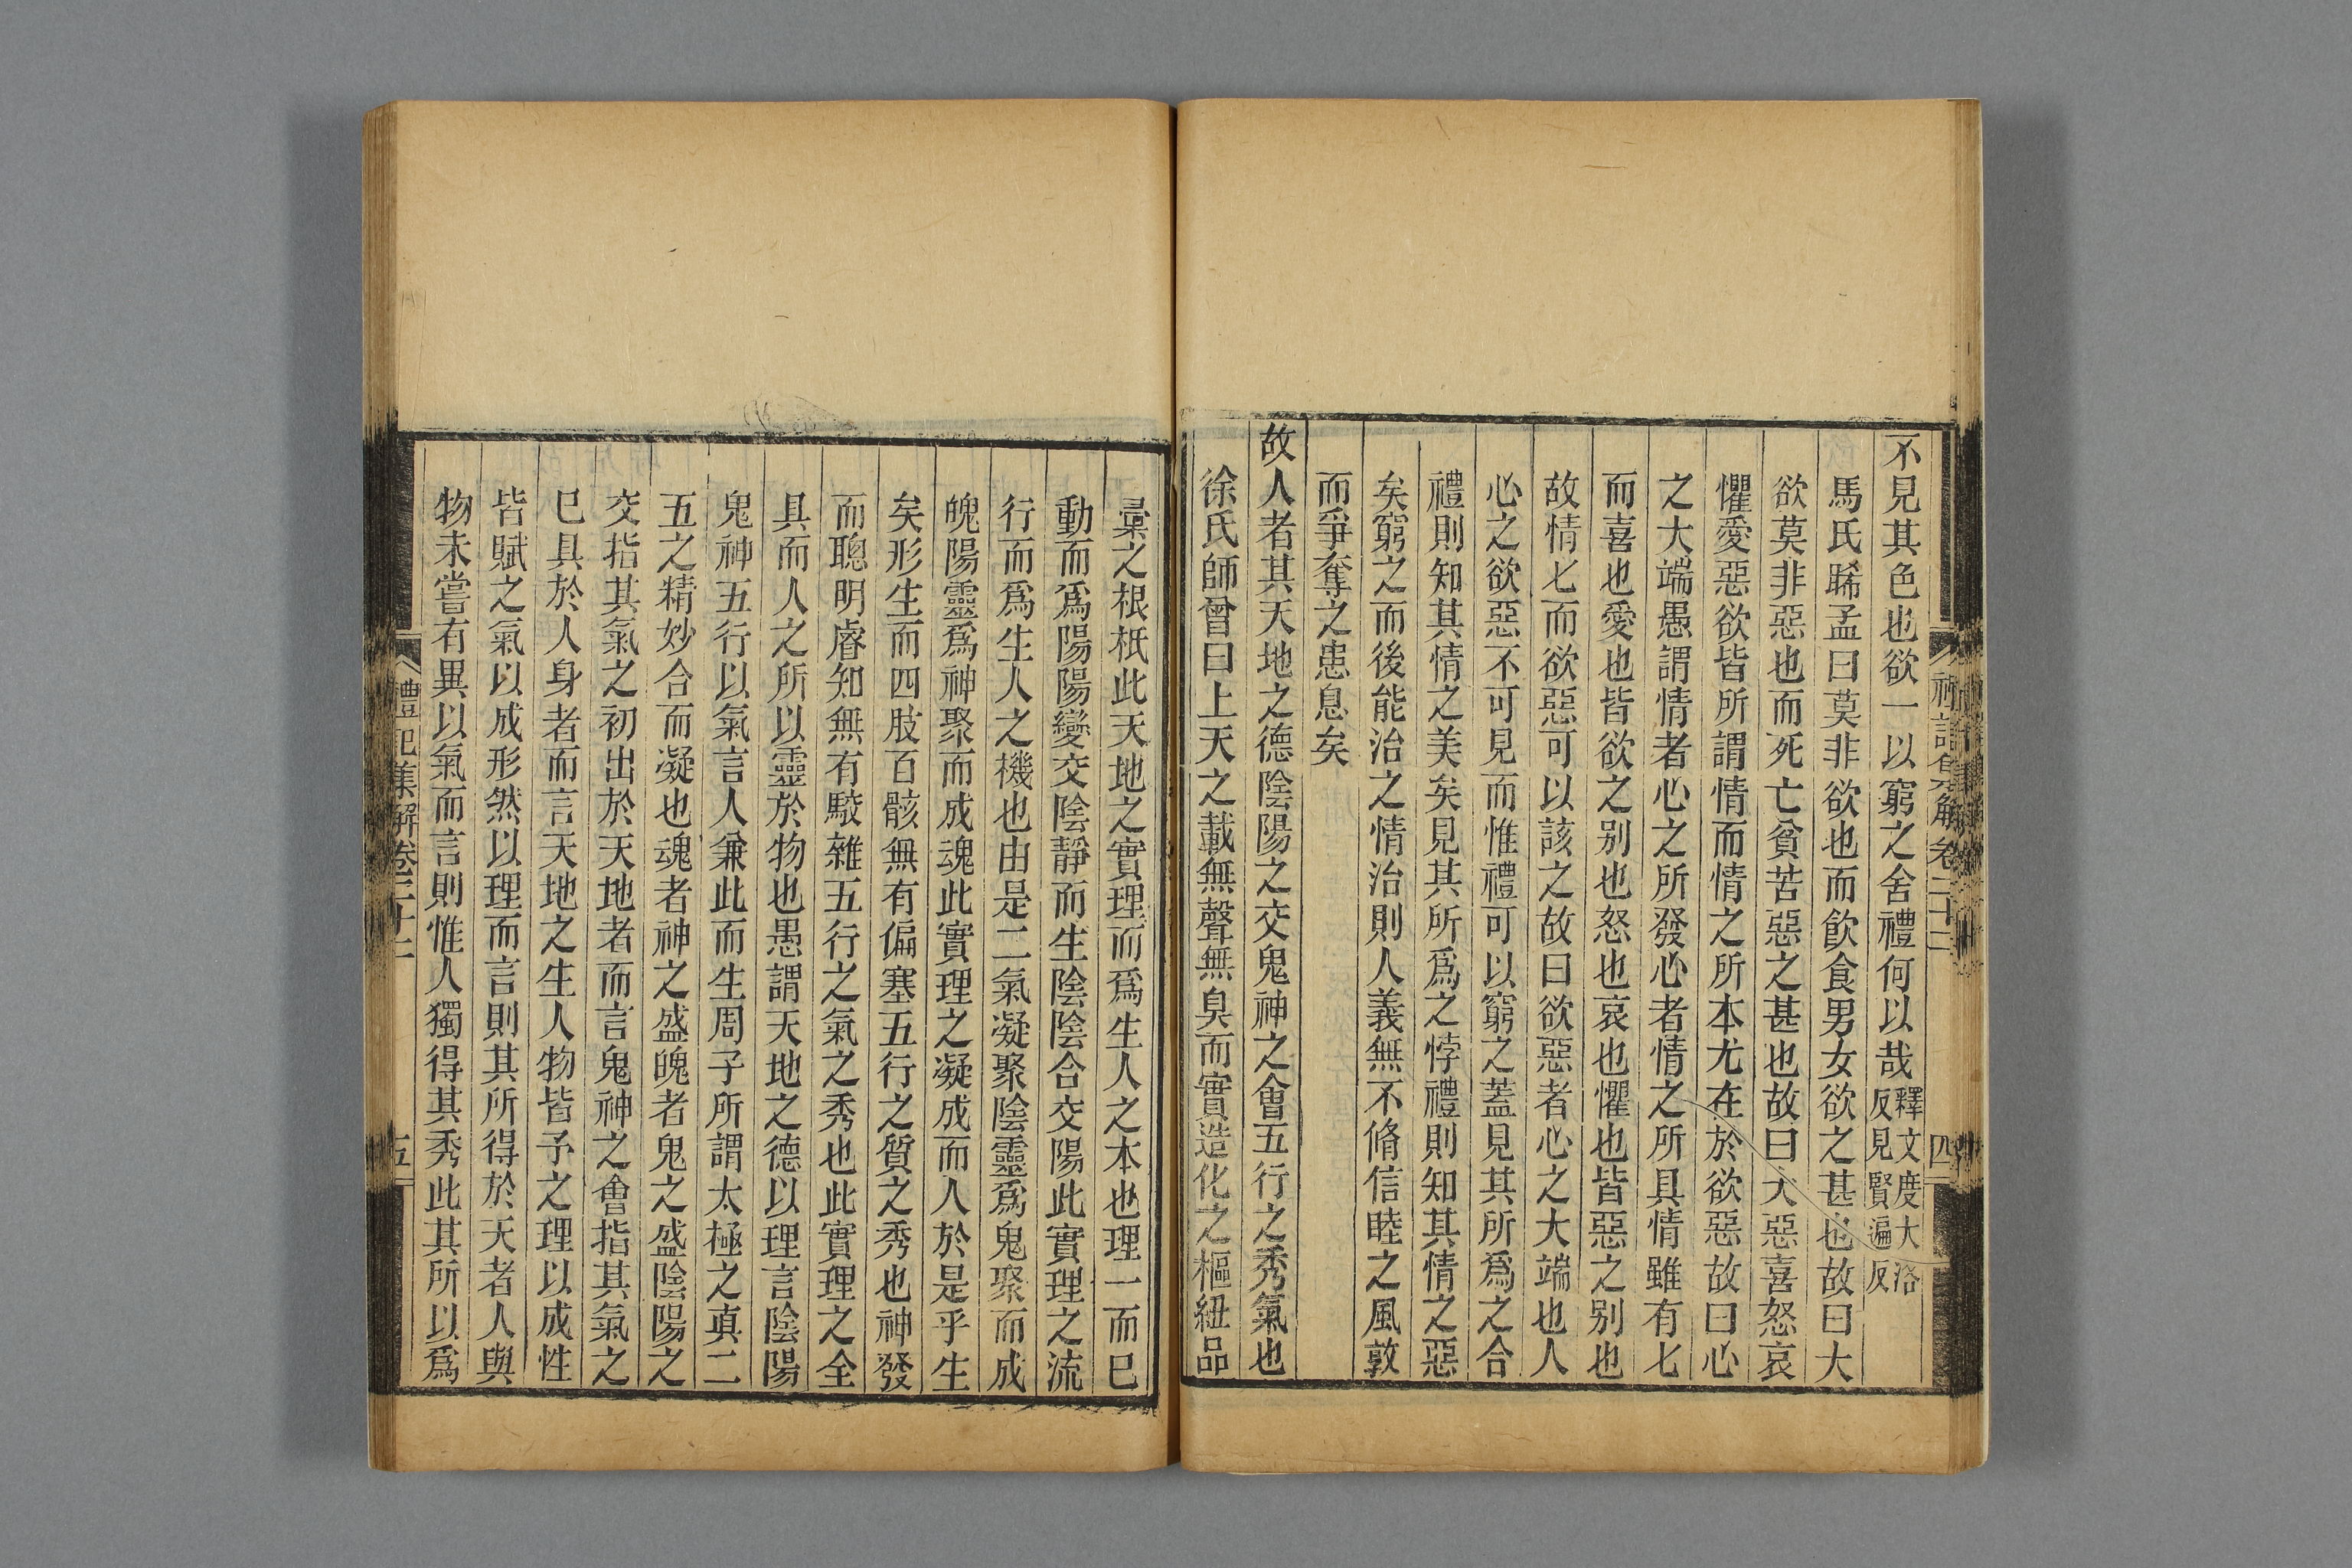 不見其色也欲一以窮之舍禮何以哉釋文度大洛反見賢遍反
馬氏睎孟曰莫非欲也而飮食男女欲之甚也故曰大
欲莫非惡也而死亡貧苦惡之甚也故曰大惡喜怒哀
懼愛惡欲皆所謂情而情之所本尤在於欲惡故曰心
之大端愚謂情者心之所發心者情之所具情雖有七
而喜也愛也皆欲之别也怒也哀也懼也皆惡之别也
故情七而欲惡可以該之故曰欲惡者心之大端也人
心之欲惡不可見而惟禮可以窮之蓋見其所爲之合
禮則知其情之美矣見其所爲之悖禮則知其情之惡
矣窮之而後能治之情治則人義無不脩信睦之風敦
而爭奪之患息矣
故人者其天地之德陰陽之交鬼神之會五行之秀氣也
徐氏師曾曰上天之載無聲無臭而實造化之樞紐品
彚之根柢此天地之實理而爲生人之本也理一而已
動而爲陽陽變交陰靜而生陰陰合交陽此實理之流
行而爲生人之機也由是二氣凝聚陰靈爲鬼聚而成
魄陽靈爲神聚而成魂此實理之凝成而人於是乎生
矣形生而四肢百骸無有偏塞五行之質之秀也神發
而聰明睿知無有駁雜五行之氣之秀也此實理之全
具而人之所以靈於物也愚謂天地之德以理言陰陽
鬼神五行以氣言人兼此而生周子所謂太極之真二
五之精妙合而凝也魂者神之盛魄者鬼之盛陰陽之
交指其氣之初出於天地者而言鬼神之會指其氣之
已具於人身者而言天地之生人物皆予之理以成性
皆賦之氣以成形然以理而言則其所得於天者人與
物未嘗有異以氣而言則惟人獨得其秀此其所以爲
禮記集解卷二十二
四
禮記集解卷二十二
五